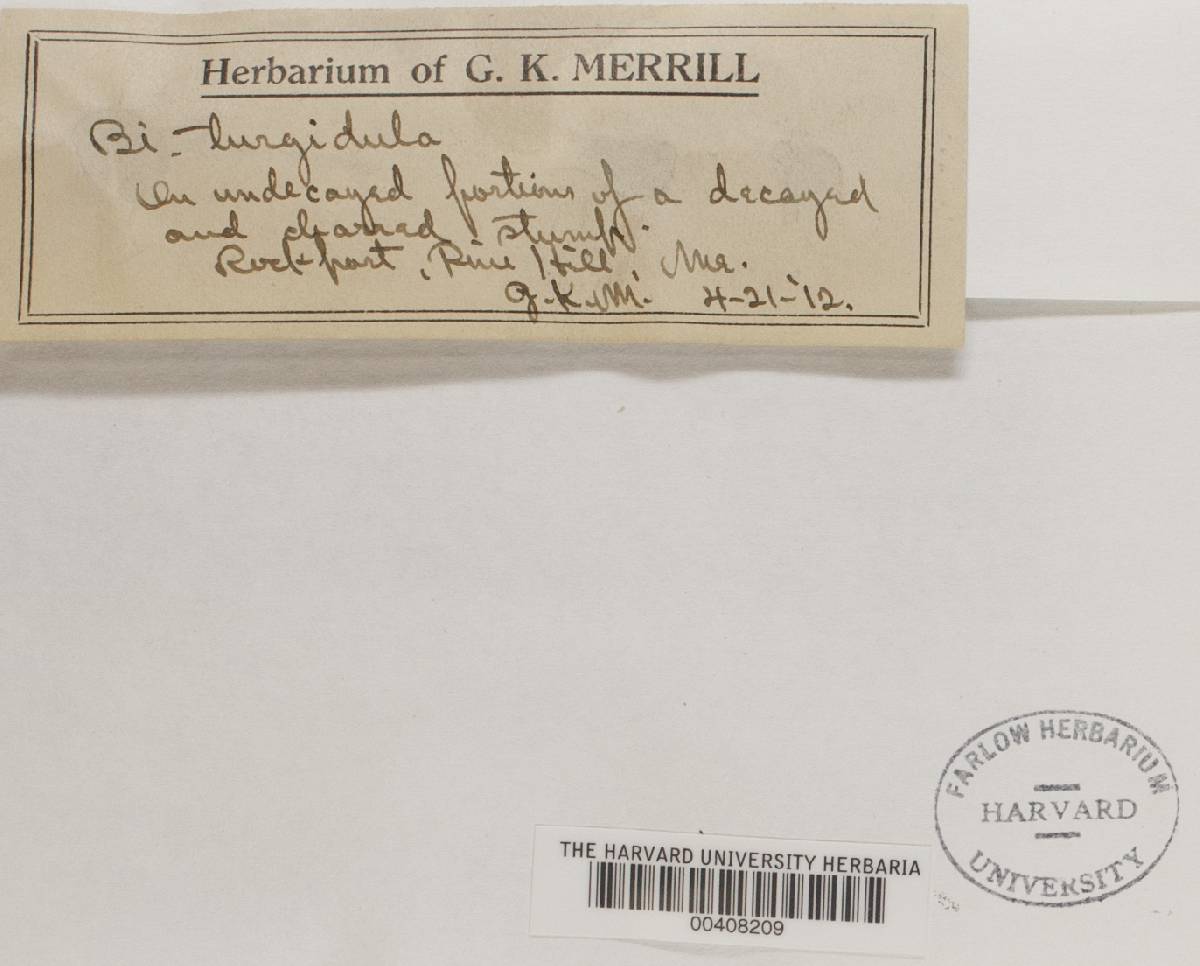 Herbarium of G. K. MERRILL
Bi- turgidula
On undecayed portions of a decayed
and charred stump.
Rockport, Hill, Me.
G.K.M. 4-21-'12.
FARLOW HERBARIUM
HARVARD
UNIVERSITY
THE HARVARD UNIVERSITY HERBARIA
00408209